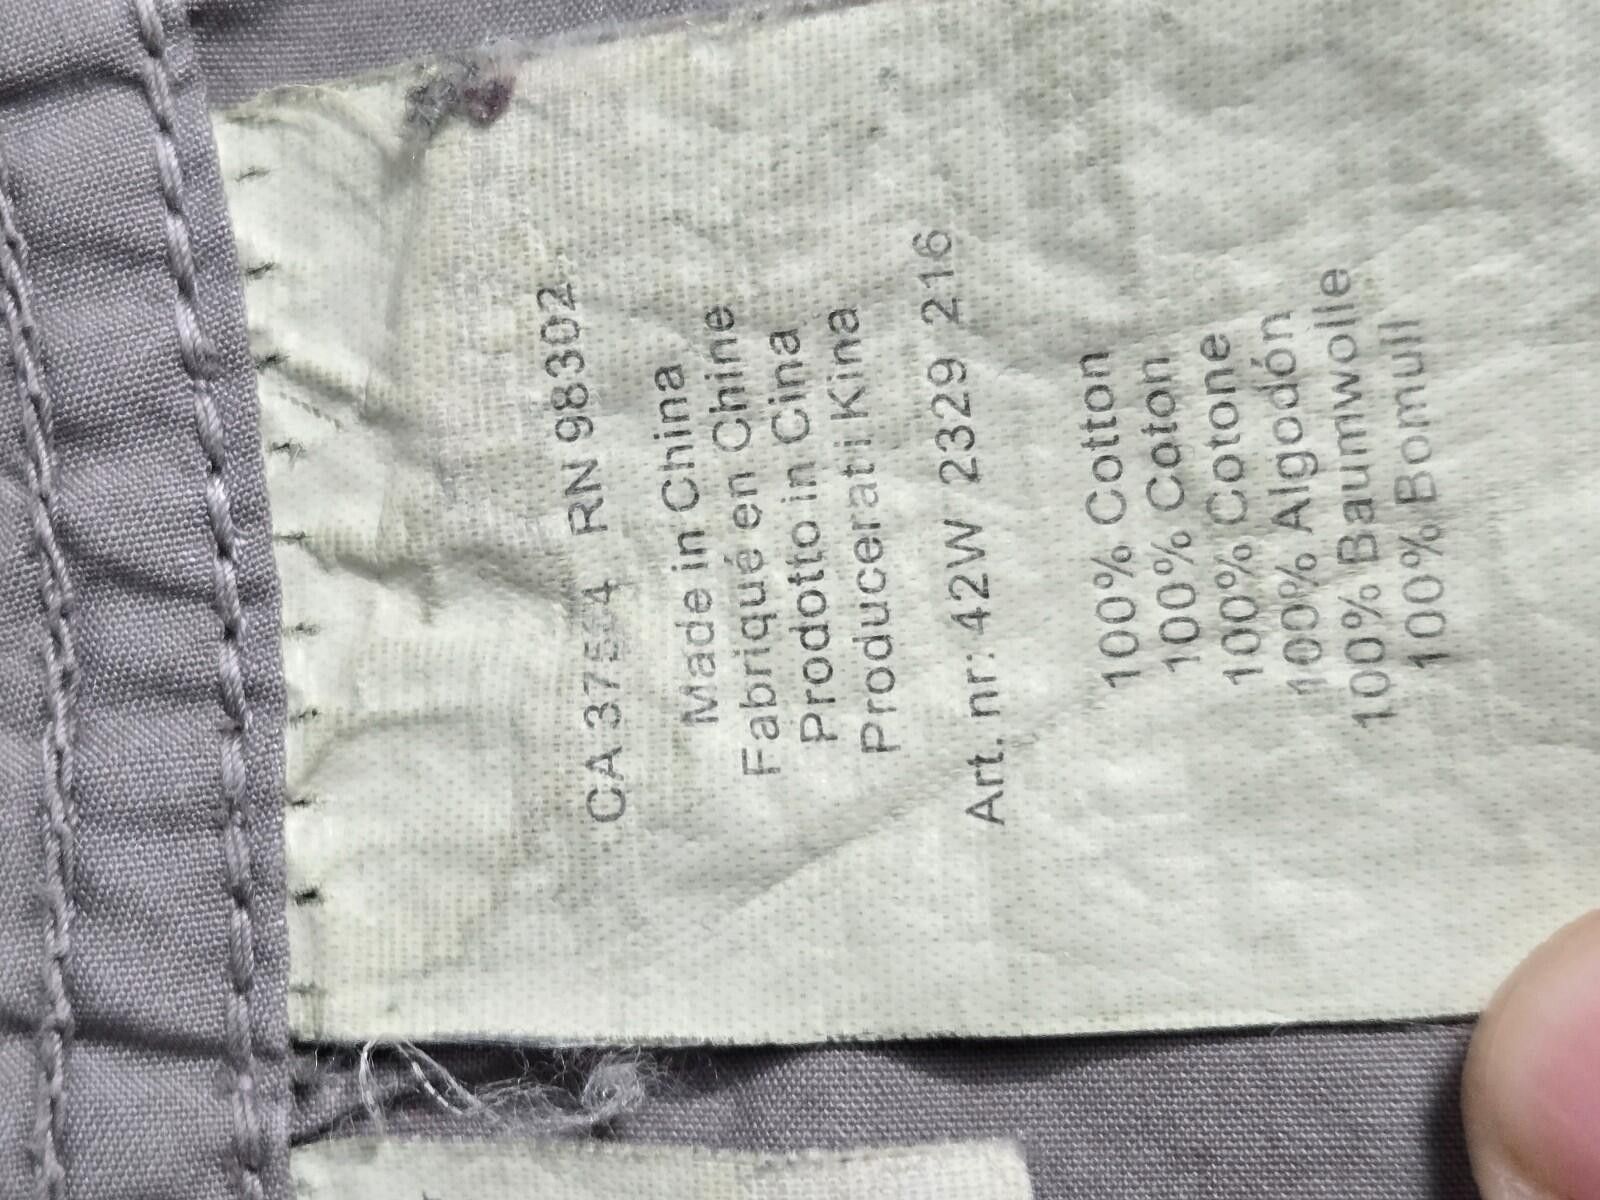 CA 37554 RN 98302
Made in China
Fabriqué en Chine
Prodotto in Cina
Producerat i Kina
Art. nr: 42W 2329 216
100% Cotton
100% Coton
100% Cotone
100% Algodón
100% Baumwolle
100% Bomull